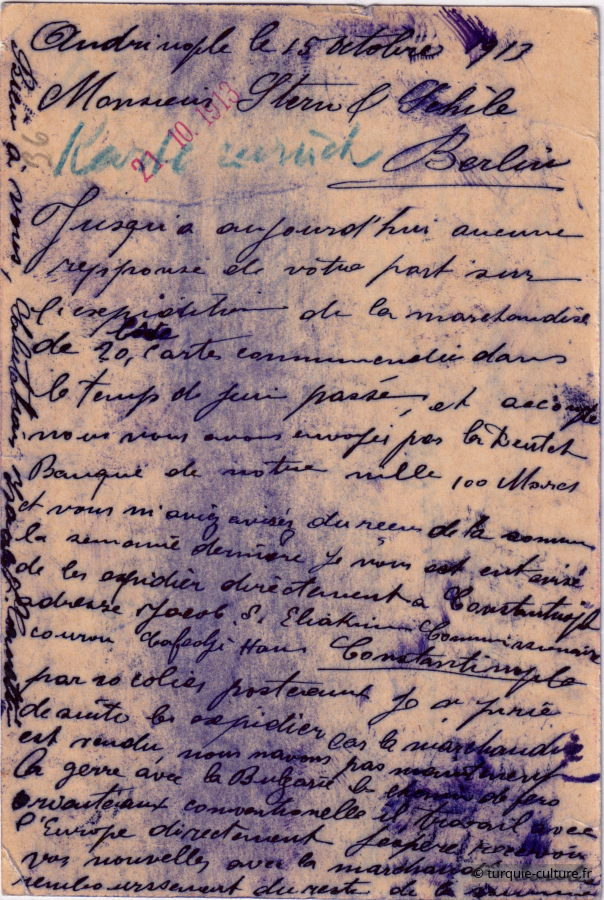 Andrinople le 15 octobre 1913
Monsieur Stern & Schile
Berlin
Karte zurück
21.10.1913
Jusqu'a aujourd'hui aucune
repponse de vôtre part sur
l'expidition de la marchandise
de 20, cartes commendée dans
le temps de juin passée, et
nous vous avons envoyer par la Deutch
Banque de notre ville 100 Marcs
et vous m'aviez avisés du recu de la somme
la semaine dernière je vous
de les expidier directement a Constantinople
adresse Jacob. S. Eliakim Commissionaire
Cafedji Han Constantinople
par 20 colies posteaux Je
de suite les expidier car la marchandise
est vendu, nous navons pas maintenent
la gerre avec la Bulgarie le chemin de fers
orienteaux conventionelle il travail avec
l'Europe directement J'espére recevoir
vos nouvelles avec la marchandise
rembourssement du reste de la somme
Bien a vous,
© turquie-culture.fr